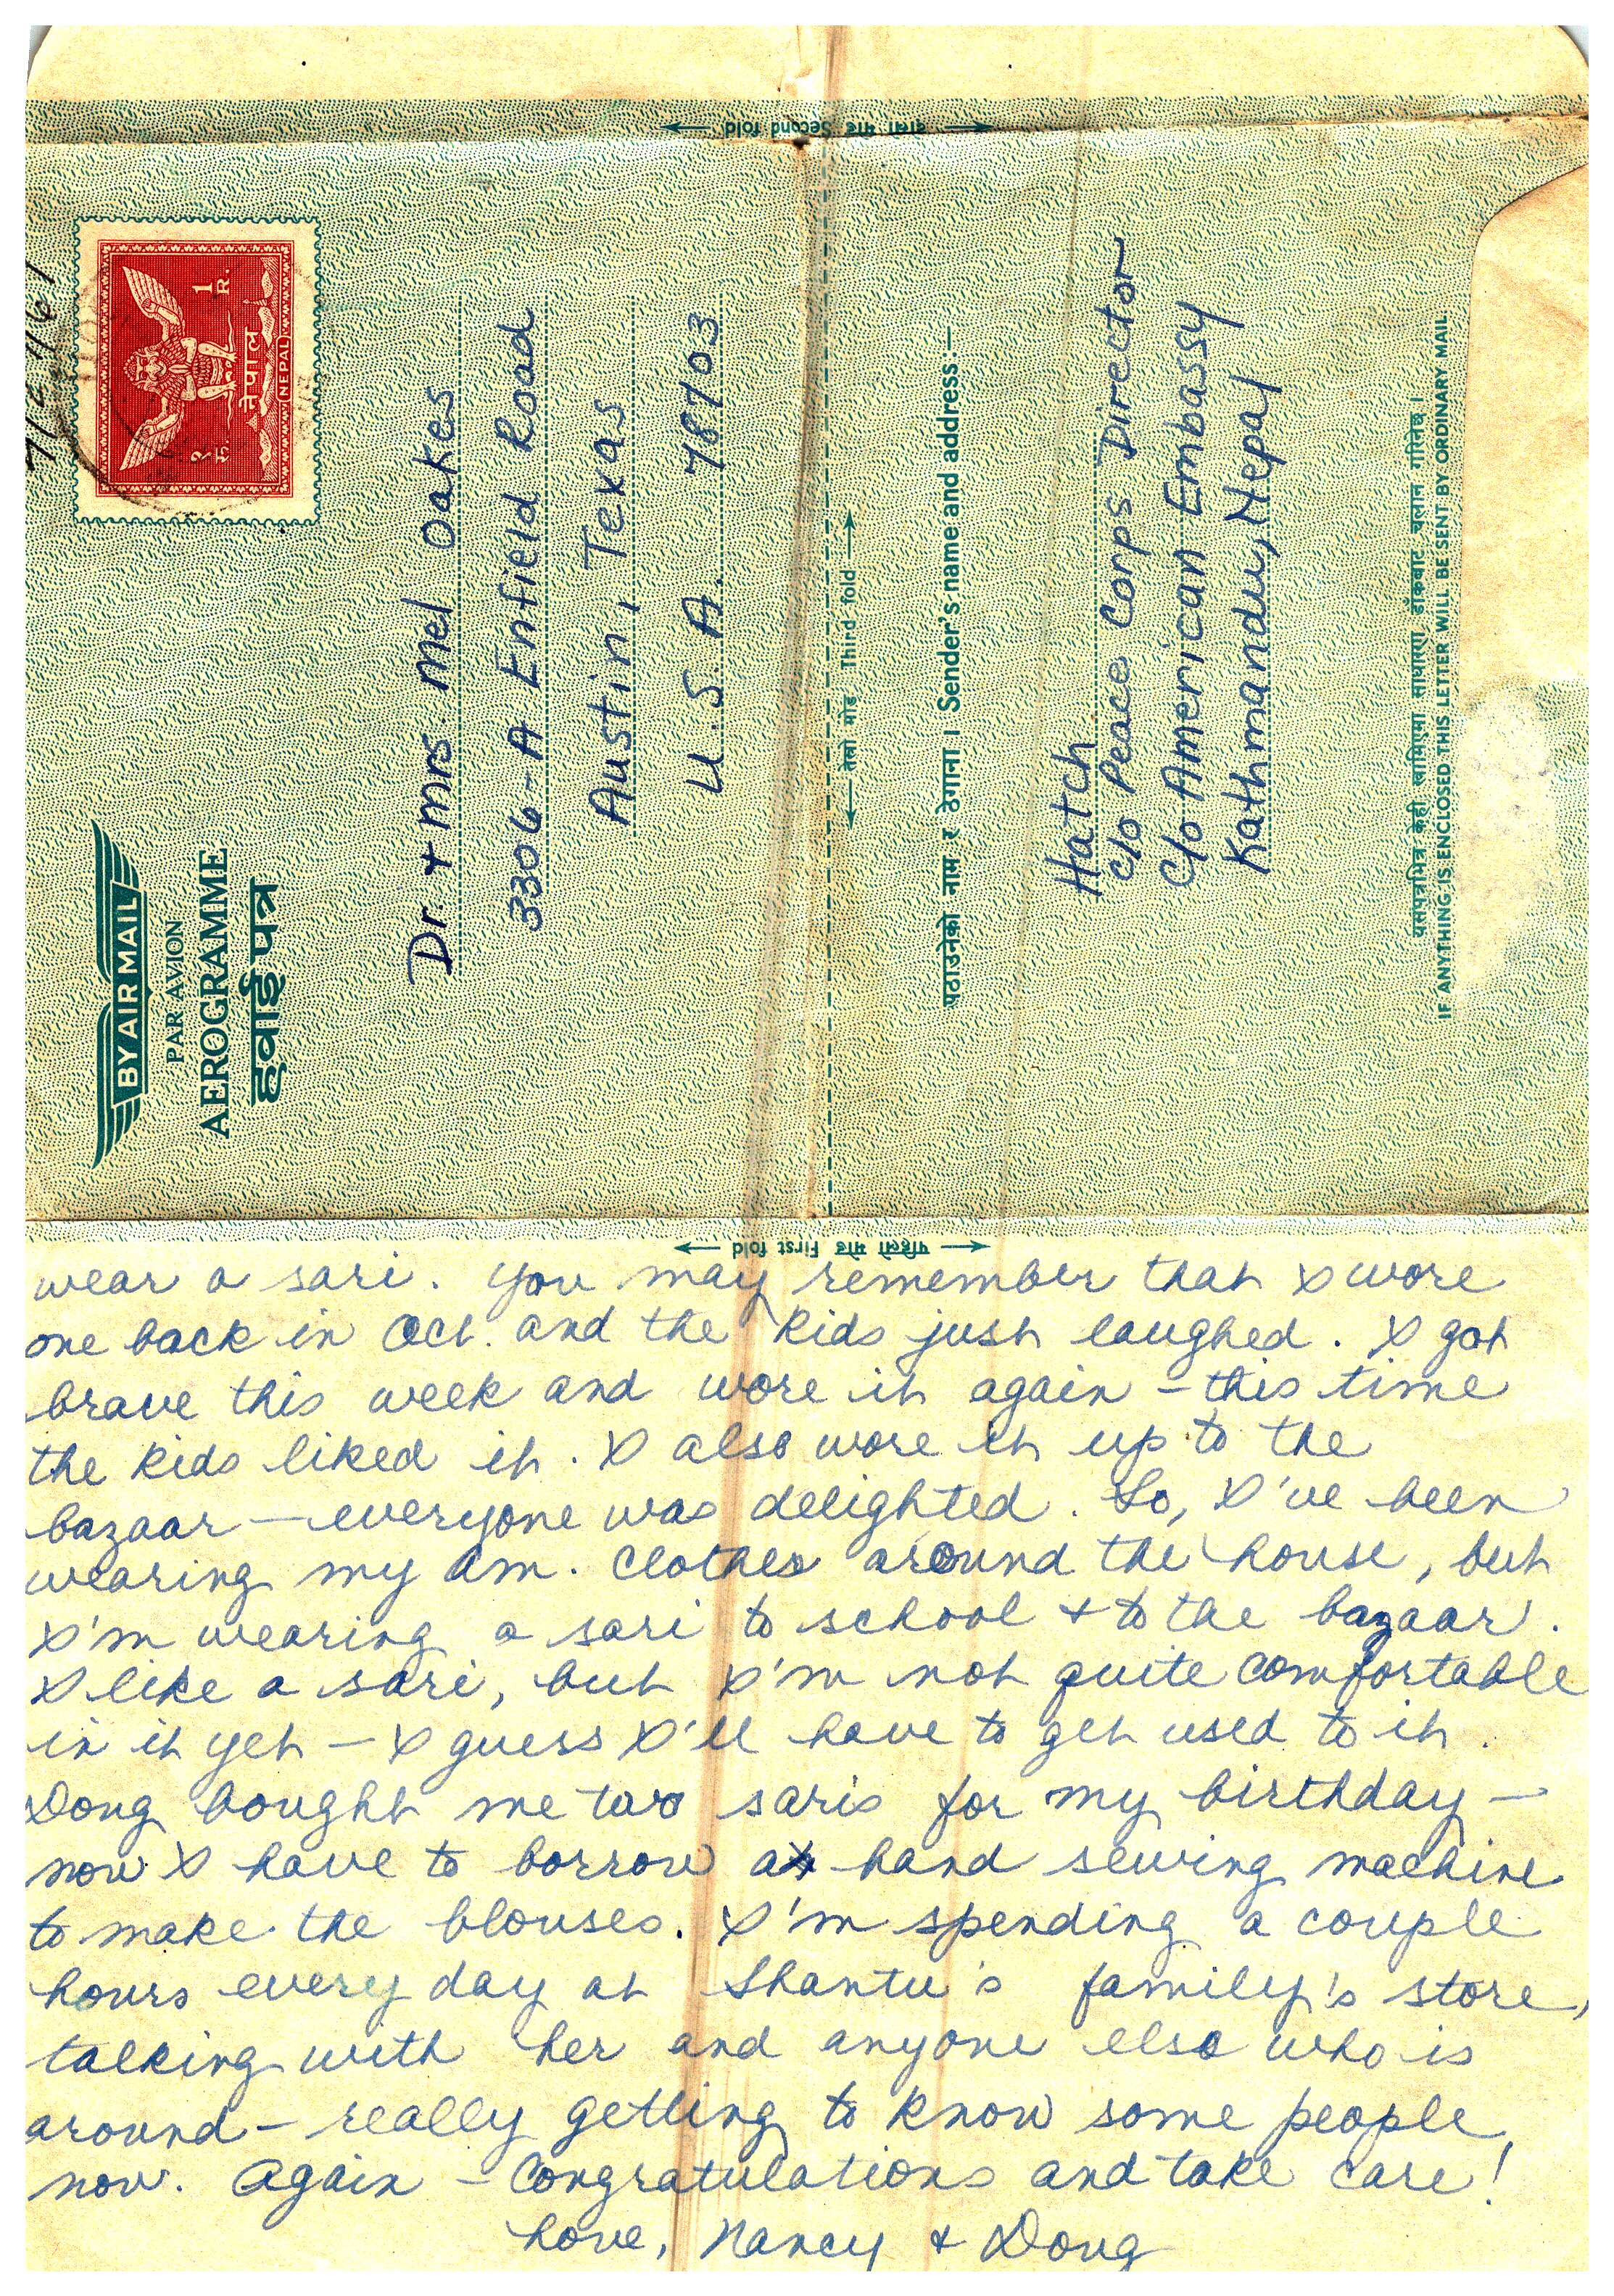 दोस्रो मोड Second fold
नेपाल
NEPAL
१
रु.
1
R.
BY AIR MAIL
PAR AVION
AEROGRAMME
हवाई पत्र
Dr. + Mrs. Mel Oakes
3306-A Enfield Road
Austin, Texas
U.S.A. 78703
तेस्रो मोड Third fold
पठाउनेको नाम र ठेगाना । Sender's name and address:—
Hatch
c/o Peace Corps Director
c/o American Embassy
Kathmandu, Nepal
यसपत्रभित्र केही खामिएमा साधारण डाँकबाट चलान गरिनेछ ।
IF ANYTHING IS ENCLOSED THIS LETTER WILL BE SENT BY ORDINARY MAIL.
पहिलो मोड First fold
wear a sari. You may remember that I wore
one back in Oct. and the kids just laughed. I got
brave this week and wore it again - this time
the kids liked it. I also wore it up to the
bazaar — everyone was delighted. So, I've been
wearing my Am. clothes around the house, but
I'm wearing a sari to school + to the bazaar.
I like a sari, but I'm not quite comfortable
in it yet — I guess I'll have to get used to it.
Doug bought me two saris for my birthday —
now I have to borrow a hand sewing machine
to make the blouses. I'm spending a couple
hours every day at Shantu's family's store,
talking with her and anyone else who is
around - really getting to know some people
now. Again - Congratulations and take care!
Love, Nancy + Doug